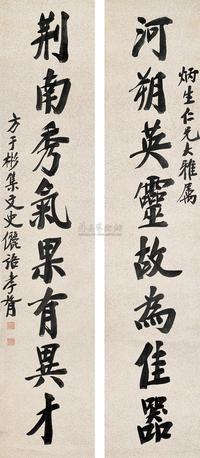 炳生仁兄大雅属
河朔英靈故為佳器
荆南秀氣果有異才
方于彬集文史儷語孝胥